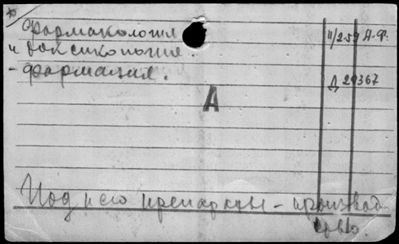 Фармакология
и токсикология.
- фармация.
II/259 А-Ф.
Д 29367
А
Йод и его препараты - производ
ство.